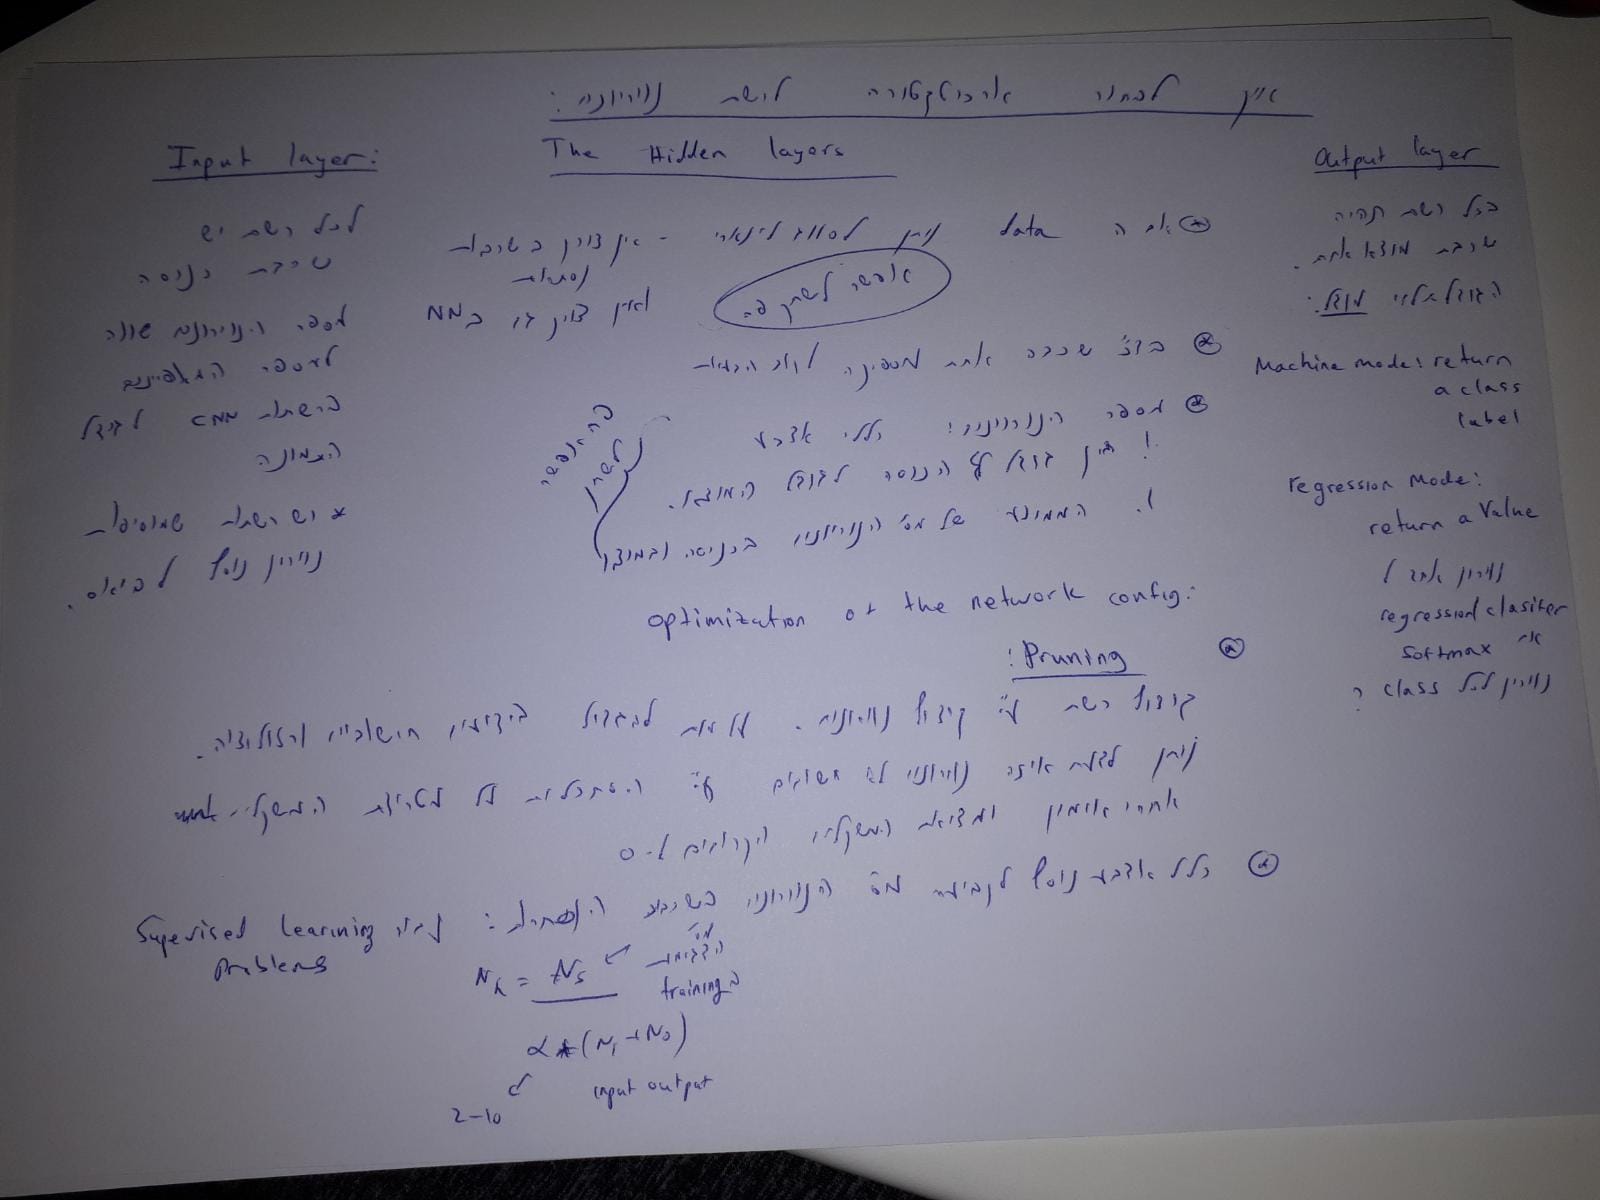 איך לבחור ארכיטקטורה לרשת נוירונים:
Input layer:
לכל רשת יש
שכבת כניסה
מספר הנוירונים שווה
למספר המאפיינים
ברשתות CNN לגודל
התמונה
* יש רשתות שמוסיפות
נוירון נוסף לביאס.
The Hidden layers
אם ה data ניתן לסווג לינארי - אין צורך בשכבות
נסתרות
ואין צורך גם ב NN
אפשר לשחק פה
בד"כ שכבה אחת מספיקה לרוב הבעיות
מספר הנוירונים: כללי אצבע
1. בין גודל הכניסה לגודל המוצא.
2. הממוצע של מס' הנוירונים בכניסה ובמוצא
פה אפשר
לשחק
optimization of the network config:
Pruning:
קיצוץ רשת ע"י קיצוץ נוירונים. על מנת להגדיל ביצועים חישוביים ורזולוציה.
ניתן לדעת איזה נוירונים לא חשובים ע"י הסתכלות על מטריצת המשקלים
אחרי אימון ומציאת המשקלים הקרובים ל-0
כלל אצבע נוסף לקביעת מס' הנוירונים בשכבות הנסתרות: עבור Supervised Learning
problems
Nh = Ns
מס'
הדגימות
ב training
α * (Ni + No)
input output
2-10
Output layer
בכל רשת תהיה
שכבת מוצא אחת.
הגודל תלוי מודל:
Machine mode: return
a class
label
regression Mode:
return a Value
נוירון אחד ל
regression clasifer
או softmax
נוירון לכל class ?